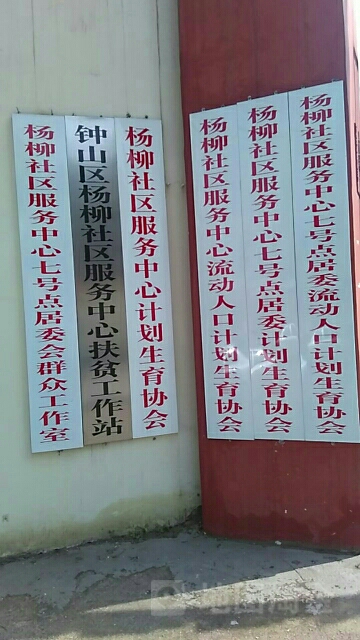 杨柳社区服务中心七号点居委会群众工作室
钟山区杨柳社区服务中心扶贫工作站
杨柳社区服务中心计划生育协会
杨柳社区服务中心流动人口计划生育协会
杨柳社区服务中心七号点居委计划生育协会
杨柳社区服务中心七号点居委流动人口计划生育协会